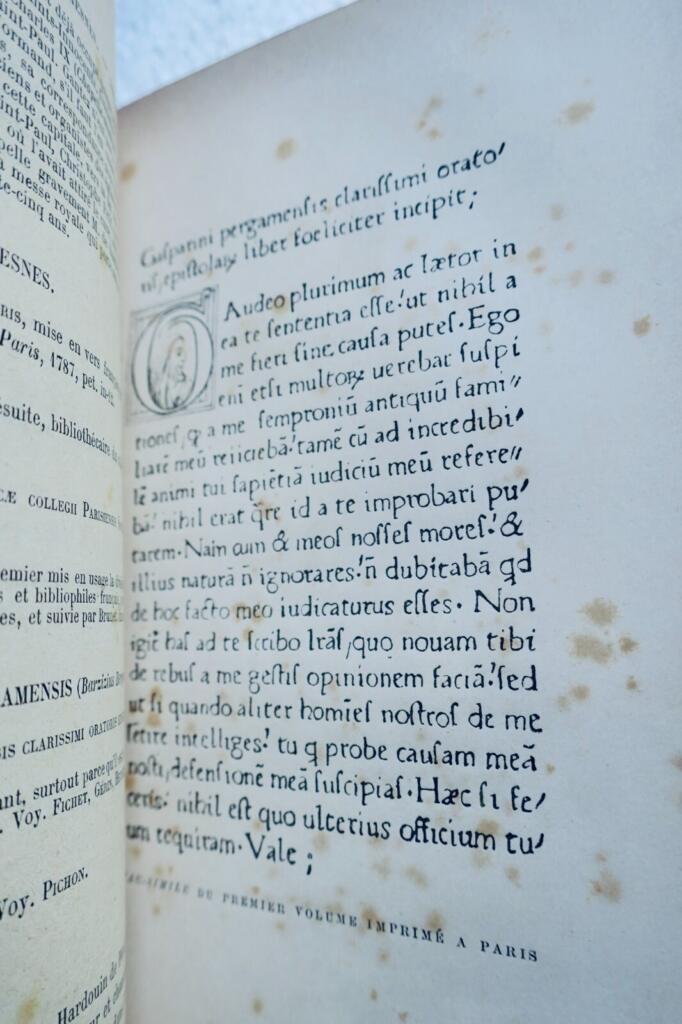 saint-Paul.
Charles IX
Normand.
cette capitale
saint-Paul,
où l'avait attiré
gravement M.
messe royale qui
te-cinq ans.
ESNES.
RIS, mise en vers
Paris, 1787, pet. in-12.
ésuite, bibliothécaire
CÆ COLLEGII PARISIENSIS
emier mis en usage la
s et bibliophiles
es, et suivie par Brunet
AMENSIS (Barzizius
SIS CLARISSIMI ORATORIS
ant, surtout parce qu'
. Voy. FICHET,
Voy. PICHON.
Hardouin de
ur et
Gasparini pergamensis clarissimi orato/
ris, epistolaꝝ liber foeliciter incipit;
GAudeo plurimum ac lætor in
ea te sententia esse! ut nihil a
me fieri sine causa putes. Ego
eni etsi multoꝝ uerebar suspi
tiones, ꝙ a me semproniū antiquū fami//
liarē meū reiiciebā! tamē cū ad incredibi/
lē animi tui sapiētiā iudiciū meū refere//
bā! nihil erat q̄re id a te improbari pu/
tarem. Nam cum & meos nosses mores! &
illius naturā ñ ignorares! ñ dubitabā qd
de hoc facto meo iudicaturus esses. Non
igit̄ has ad te scribo l̄ras, quo nouam tibi
de rebus a me gestis opinionem faciā! sed
ut si quando aliter homīes nostros de me
sētire intelliges! tu q probe causam meā
nosti, defensionē meā suscipias. Hæc si fe/
ceris! nihil est quo ulterius officium tu/
um requiram. Vale;
AC-SIMILE DU PREMIER VOLUME IMPRIMÉ A PARIS